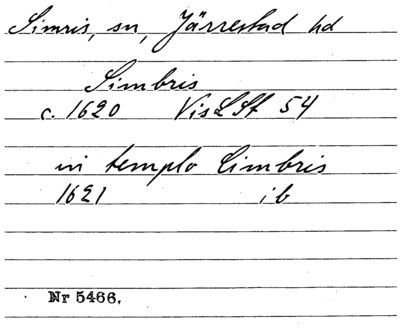 Simris, sn, Järrestad hd
Simbris
c. 1620 VisLSt 54
in templo Cimbris
1621 ib
Nr 5466.